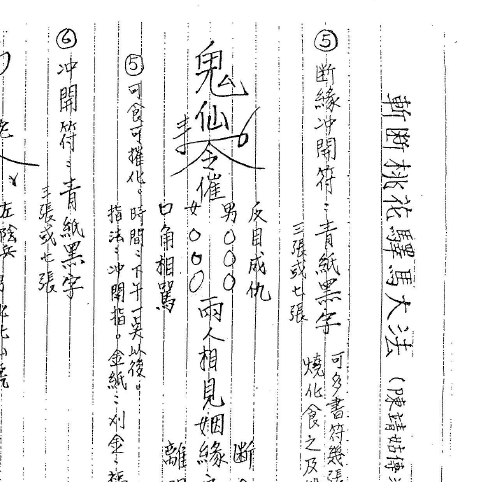 斬斷桃花驛馬大法(陳靖姑傳
⑤斷緣冲開符:青紙黑字
可多書符幾張
燒化食之及
三張或七張
鬼仙令催
男○○○
女○○○
反目成仇
口角相罵
兩人相見姻緣
斷
離
⑤可食可摧化。時間:下午一點以後。
指法:冲開指。金紙:刈金:福
⑥冲開符:青紙黑字
三張或七張
左陰兵